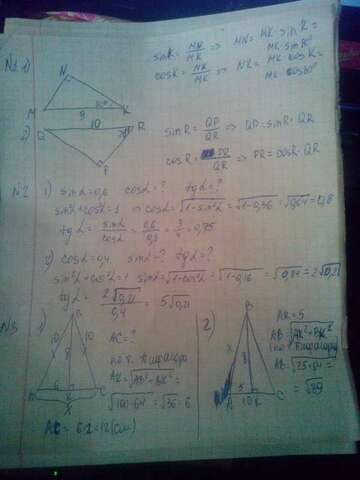 N1 1)
N
M
K
9
sin K = MN/MK ⇒ MN = MK · sin K =
MK · sin
cos K = NK/MK ⇒ NK = MK · cos K =
MK cos
2) Q 10 R
P
sin R = QP/QR ⇒ QP = sin R · QR
cos R = PR/QR ⇒ PR = cos R · QR
N2 1) sin α = 0,6 cos α = ? tg α = ?
sin²α + cos²α = 1 ⇒ cos α = √1-sin²α = √1-0,36 = √0,64 = 0,8
tg α = sin α/cos α = 0,6/0,8 = 3/4 = 0,75
2) cos α = 0,4 sin α - ? tg α = ?
sin²α + cos²α = 1 sin α = √1-cos²α = √1-0,16 = √0,84 = 2√0,21
tg α = 2√0,21/0,4 = 5√0,21
N3 1) B
10 8 10
6 K
X
AC = ?
по т. Пифагора
AK = √AB²-BK² =
√100-64 = √36 = 6
AC = 6·2 = 12 (см)
2) B
X 8
A 5 K C
10
AK = 5
AB = √AK²+BK²
(по т. Пифагора)
AB = √25+64 =
= √89